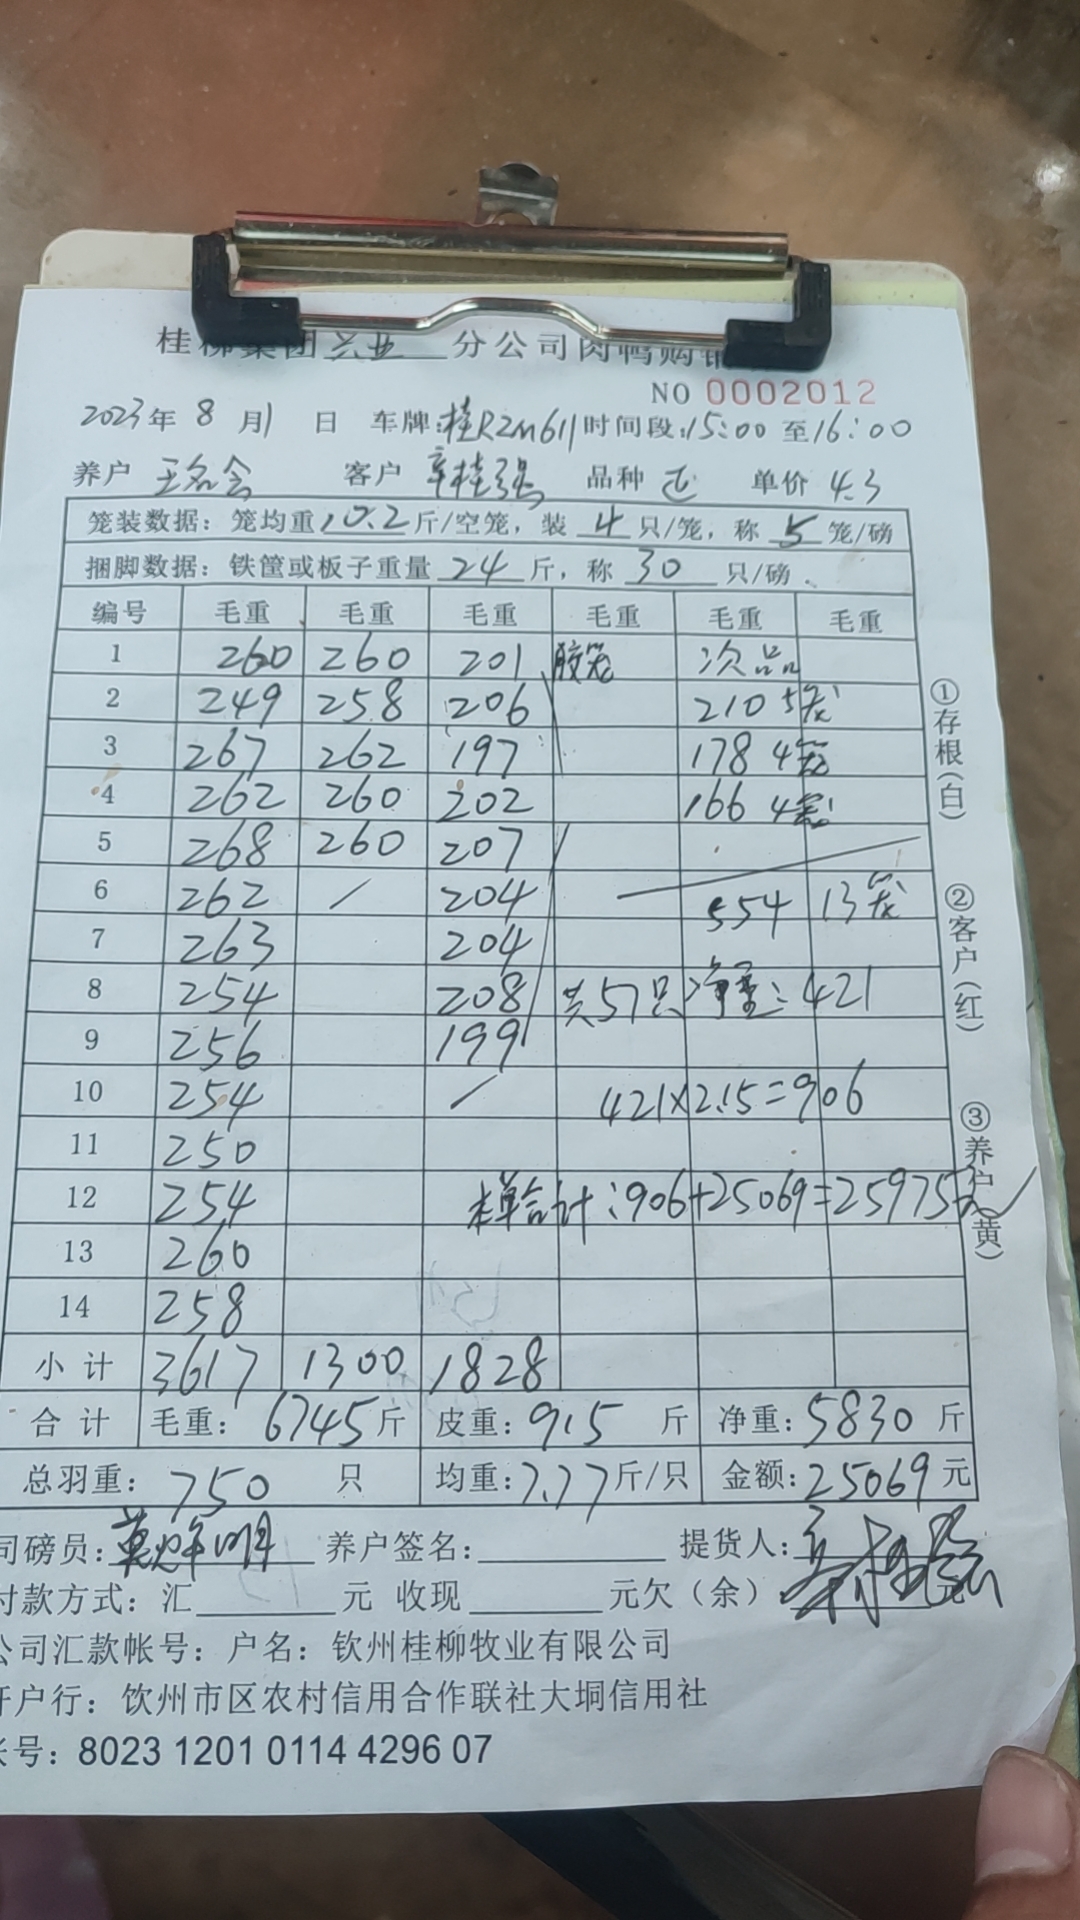 桂柳集团兴业分公司肉鸭购销
NO 0002012
2023年 8 月1 日 车牌:桂R2M611 时间段:15:00 至16:00
养户 客户 辛桂强 品种 单价 4.3
笼装数据：笼均重10.2斤/空笼，装 4 只/笼，称 5 笼/磅
捆脚数据：铁筐或板子重量 24 斤，称 30 只/磅
编号 毛重 毛重 毛重 毛重 毛重 毛重
1 260 260 201 胶笼 次品
2 249 258 206 210 5笼
3 267 262 197 178 4笼
4 262 260 202 166 4笼
5 268 260 207
6 262 / 204 554 13笼
7 263 204
8 254 208 共57只 净重:421
9 256 199
10 254 / 421×2.15=906
11 250
12 254 本单合计:906+25069=25975元
13 260
14 258
小计 3617 1300 1828
合计 毛重：6745斤 皮重：915 斤 净重：5830 斤
总羽重：750 只 均重：7.77斤/只 金额：25069元
司磅员： 养户签名： 提货人：辛桂强
付款方式：汇 元 收现 元欠（余） 元
公司汇款帐号：户名：钦州桂柳牧业有限公司
开户行：饮州市区农村信用合作联社大垌信用社
帐号：8023 1201 0114 4296 07
①存根（白）
②客户（红）
③养户（黄）